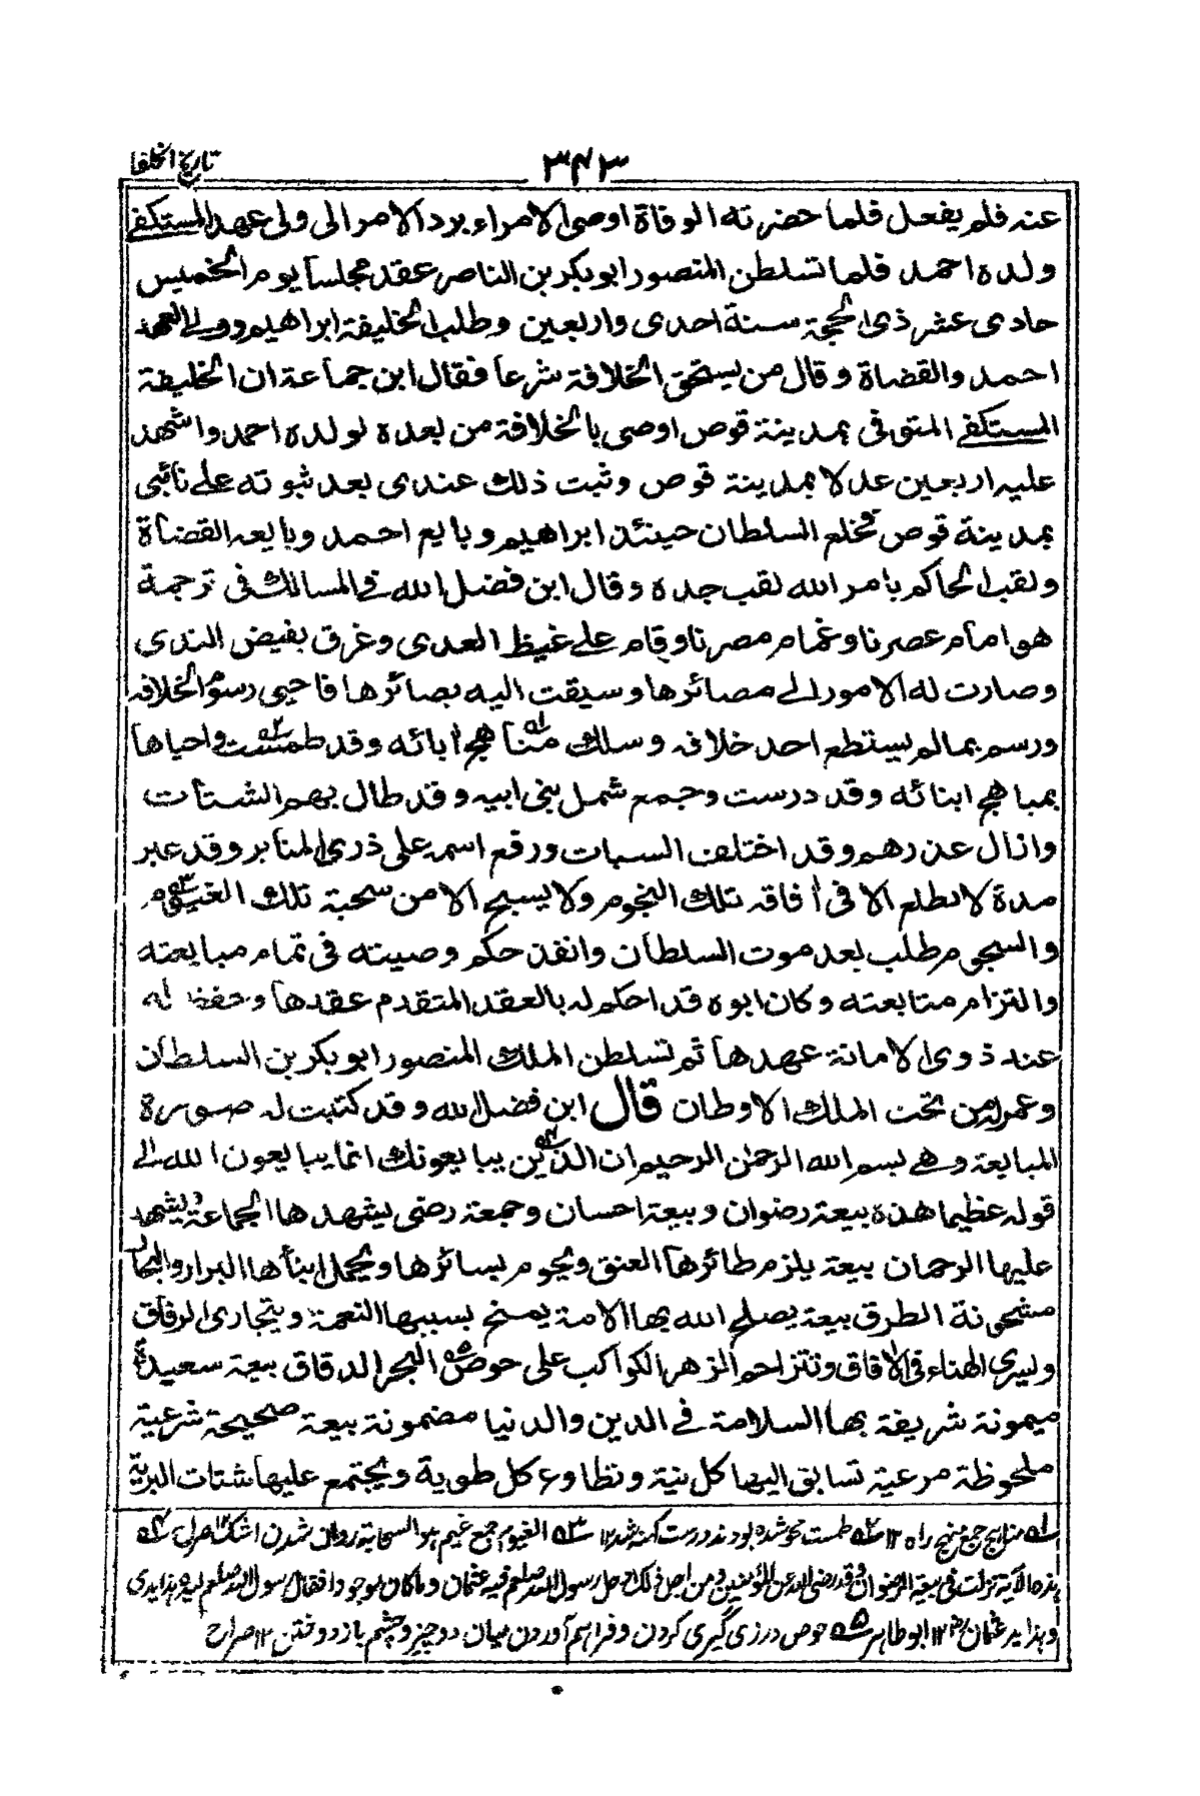 تاريخ الخلفا
٣٤٣
عنه فلم يفعل فلما حضرته الوفاة اوصى الامراء برد الامر الى ولى عهد المستكفے
ولده احمد فلما تسلطن المنصور ابو بكر بن الناصر عقد مجلسا يوم الخميس
حادى عشر ذى الحجة سنة احدى واربعين وطلب الخليفة ابراهيم وولے العهد
احمد والقضاة وقال من يستحق الخلافة شرعا فقال ابن جماعة ان الخليفة
المستكفے المتوفى بمدينة قوص اوصى بالخلافة من بعده لولده احمد واشهد
عليه اربعين عدلا بمدينة قوص وثبت ذلك عندى بعد ثبوته علے نائبى
بمدينة قوص فخلع السلطان حينئذ ابراهيم وبايع احمد وبايعه القضاة
ولقب الحاكم بامر الله لقب جده وقال ابن فضل الله فے المسالك فى ترجمة
هو امام عصرنا وغمام مصرنا وقام علے غيظ العدى وغرق بفيض الندى
وصارت له الامور الے مصائرها وسيقت اليه بصائرها فاحيى رسوم الخلافه
ورسم بمالم يستطع احد خلافه وسلك مناهج اٰبائه وقد طمست واحياها
بمباهج ابنائه وقد درست وجمع شمل بنى ابيه وقد طال بهم الشتات
وازال عذرهم وقد اختلف السبات ورفع اسمه على ذرى المنابر وقد عبر
مدة لا يطلع الا فى اٰفاقه تلك النجوم ولا يسبح الا من سحبة تلك الغيوم
والسجوم طلب بعد موت السلطان وانفذ حكم وصيته فى تمام مبايعته
والتزام متابعته وكان ابوه قد احكم له بالعقد المتقدم عقدها وحفظ له
عند ذوى الامانة عهدها ثم تسلطن الملك المنصور ابو بكر بن السلطان
وعمر له من تحت الملك الاوطان قال ابن فضل الله وقد كتبت له صورة
المبايعة وهے بسم الله الرحمٰن الرحيم ان الذين يبايعونك انما يبايعون الله الے
قوله عظيما هذه بيعة رضوان وبيعة احسان وجمعة رضى يشهدها الجماعة ويشهد
عليها الرحمان بيعة يلزم طائرها العنق ويحوم بسائرها ويحمل انبأها البرارى والبحار
مشحونة الطرق بيعة يصلح الله بها الامة يمنح بسببها النعمة ويتجارى الرفاق
ويسرى الهناء فى الاٰفاق وتتزاحم الزهر الكواكب على حوض البحر الدقاق بيعة سعيدة
ميمونة شريفة بها السلامة فے الدين والدنيا مضمونة بيعة صحيحة شرعية
ملحوظة مرعية تسابق اليها كل بنية وتطاوع كل طوية ويجتمع عليها شتات البرية
لـه مناهج جمع منهج راه ١٢ لـه طمست محو شده بودند درست كهنه شد ١٢ لـه الغيوم جمع غيم ہو السحابة روان شدن اشك ١٢ صراح لـه
ہذه الآية نزلت فى بيعة الرضوان
وہذا يد عثمان رض ١٢ ابو طاہر لـه حوص درزى گيرى كردن و فراہم آوردن ميان دو چيز و چشم باز دوختن ١٢ صراح